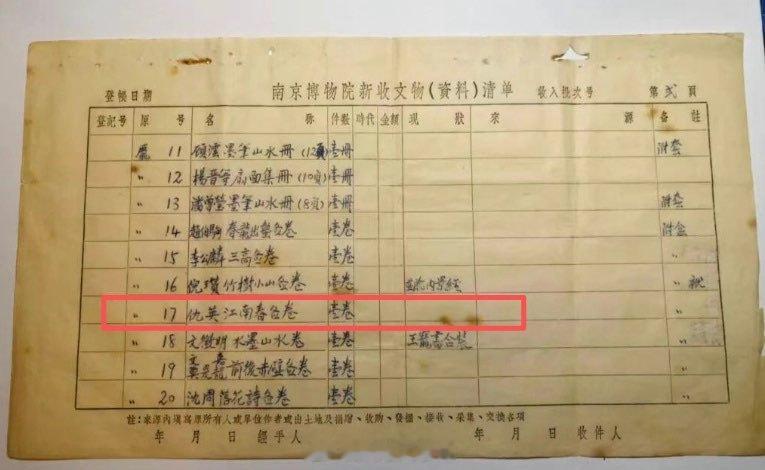 南京博物院新收文物(資料)清单
登帳日期 收入批次号 第 弍 頁
登記号 原号 名称 件数 時代 金額 現狀 來源 备註
麗 11 顾澐墨筆山水冊 (12頁) 壹冊 附套
〃 12 楊晋等扇面集冊 (10頁) 壹冊
〃 13 潘曾瑩墨筆山水冊 (8頁) 壹冊 附套
〃 14 趙伯駒 春龍出蟄会卷 壹卷 附盒
〃 15 李公麟三高会卷 壹卷 〃
〃 16 倪瓚竹樹小山会卷 壹卷 〃
〃 17 仇英江南春会卷 壹卷 〃
〃 18 文徵明水墨山水卷 壹卷 王寵書合裝 〃
〃 19 文嘉 莫是龍 前後赤壁会卷 壹卷 〃
〃 20 沈周落花詩会卷 壹卷 〃
註:來源內填寫原所有人或單位作者或出土地及捐贈、收購、發掘、接收、采集、交換各項
年 月 日 經手人 年 月 日 收件人